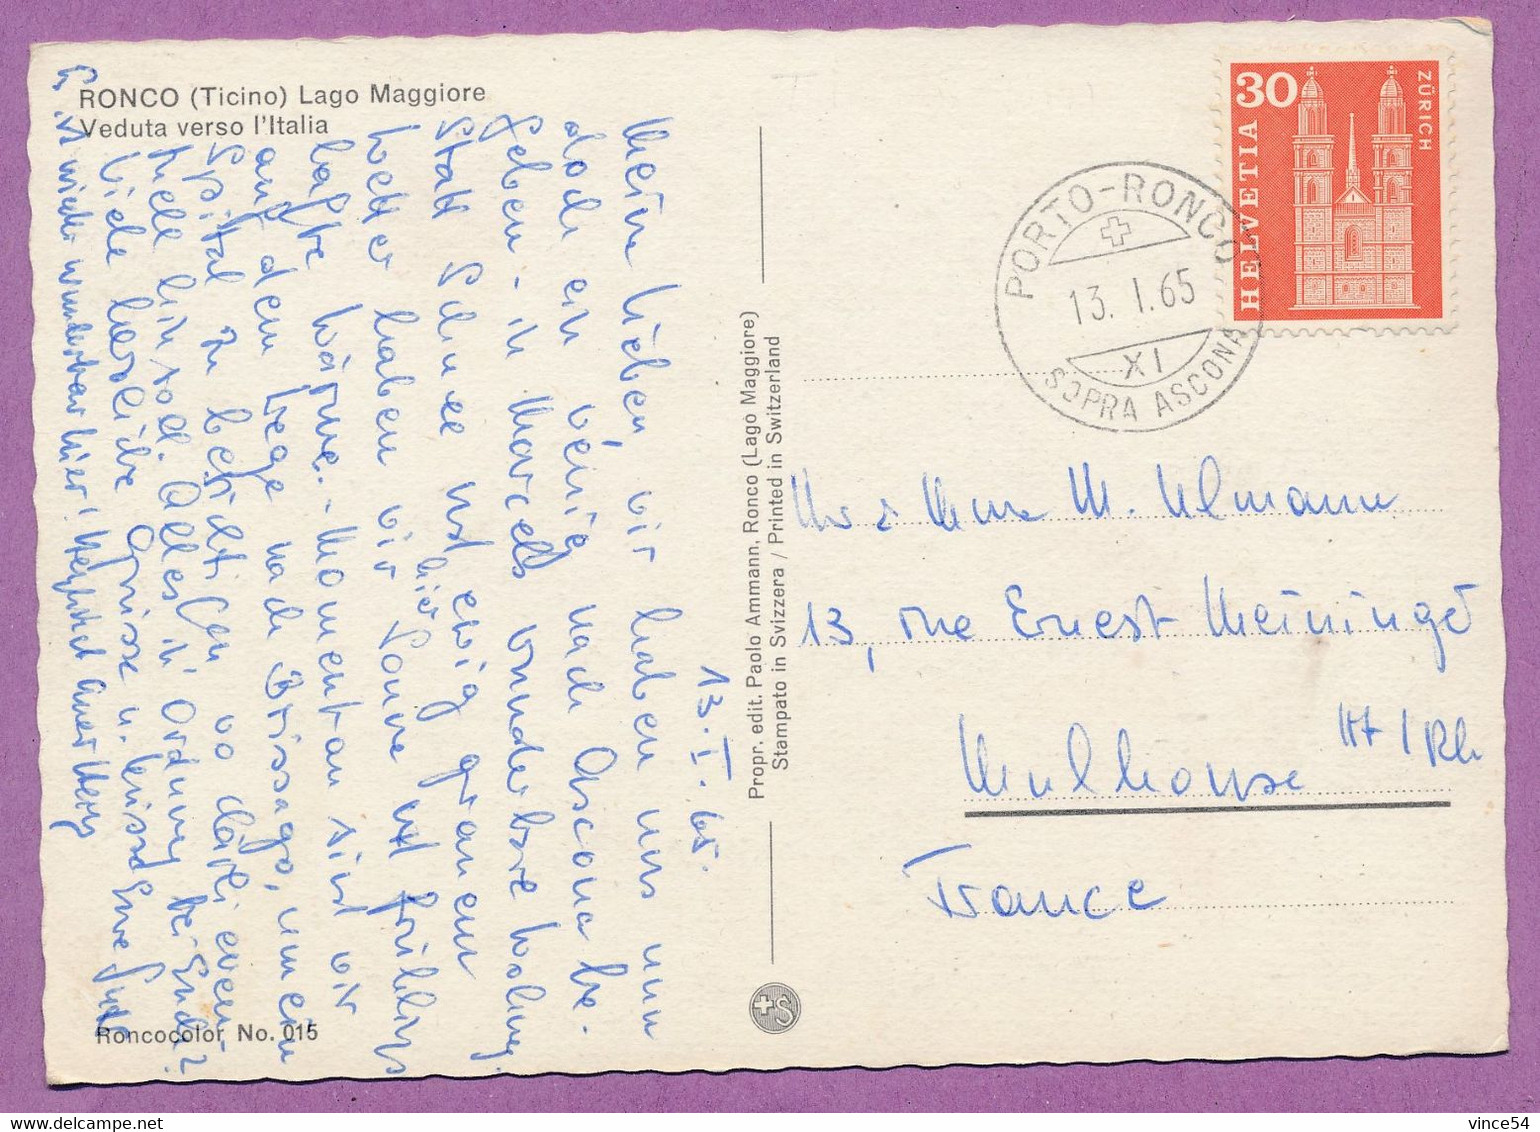 RONCO (Ticino) Lago Maggiore
Veduta verso l'Italia
13. I. 65.
Meine Lieben, wir haben uns nun
doch ein wenig nach Ascona be-
geben - in Marcels wunderbare Wohnung.
Statt Schnee und ewig grauem
Wetter haben wir hier Sonne und frühlings
hafte Wärme. - Momentan sind wir
auf dem Wege nach Brissago, um ein
Spital zu besichtigen wo
hin soll. Alles in Ordnung bei Euch?
Viele herzliche Grüsse u. Küsse Eure
wunderbar hier!
Roncocolor No. 015
Propr. edit. Paolo Ammann, Ronco (Lago Maggiore)
Stampato in Svizzera / Printed in Switzerland
S
30
HELVETIA
ZÜRICH
PORTO-RONCO
13. I. 65
XI
SOPRA ASCONA
Mr & Mme M. Ulmann
13, rue Ernest Meininger
Mulhouse Ht/Rh
France
vince54